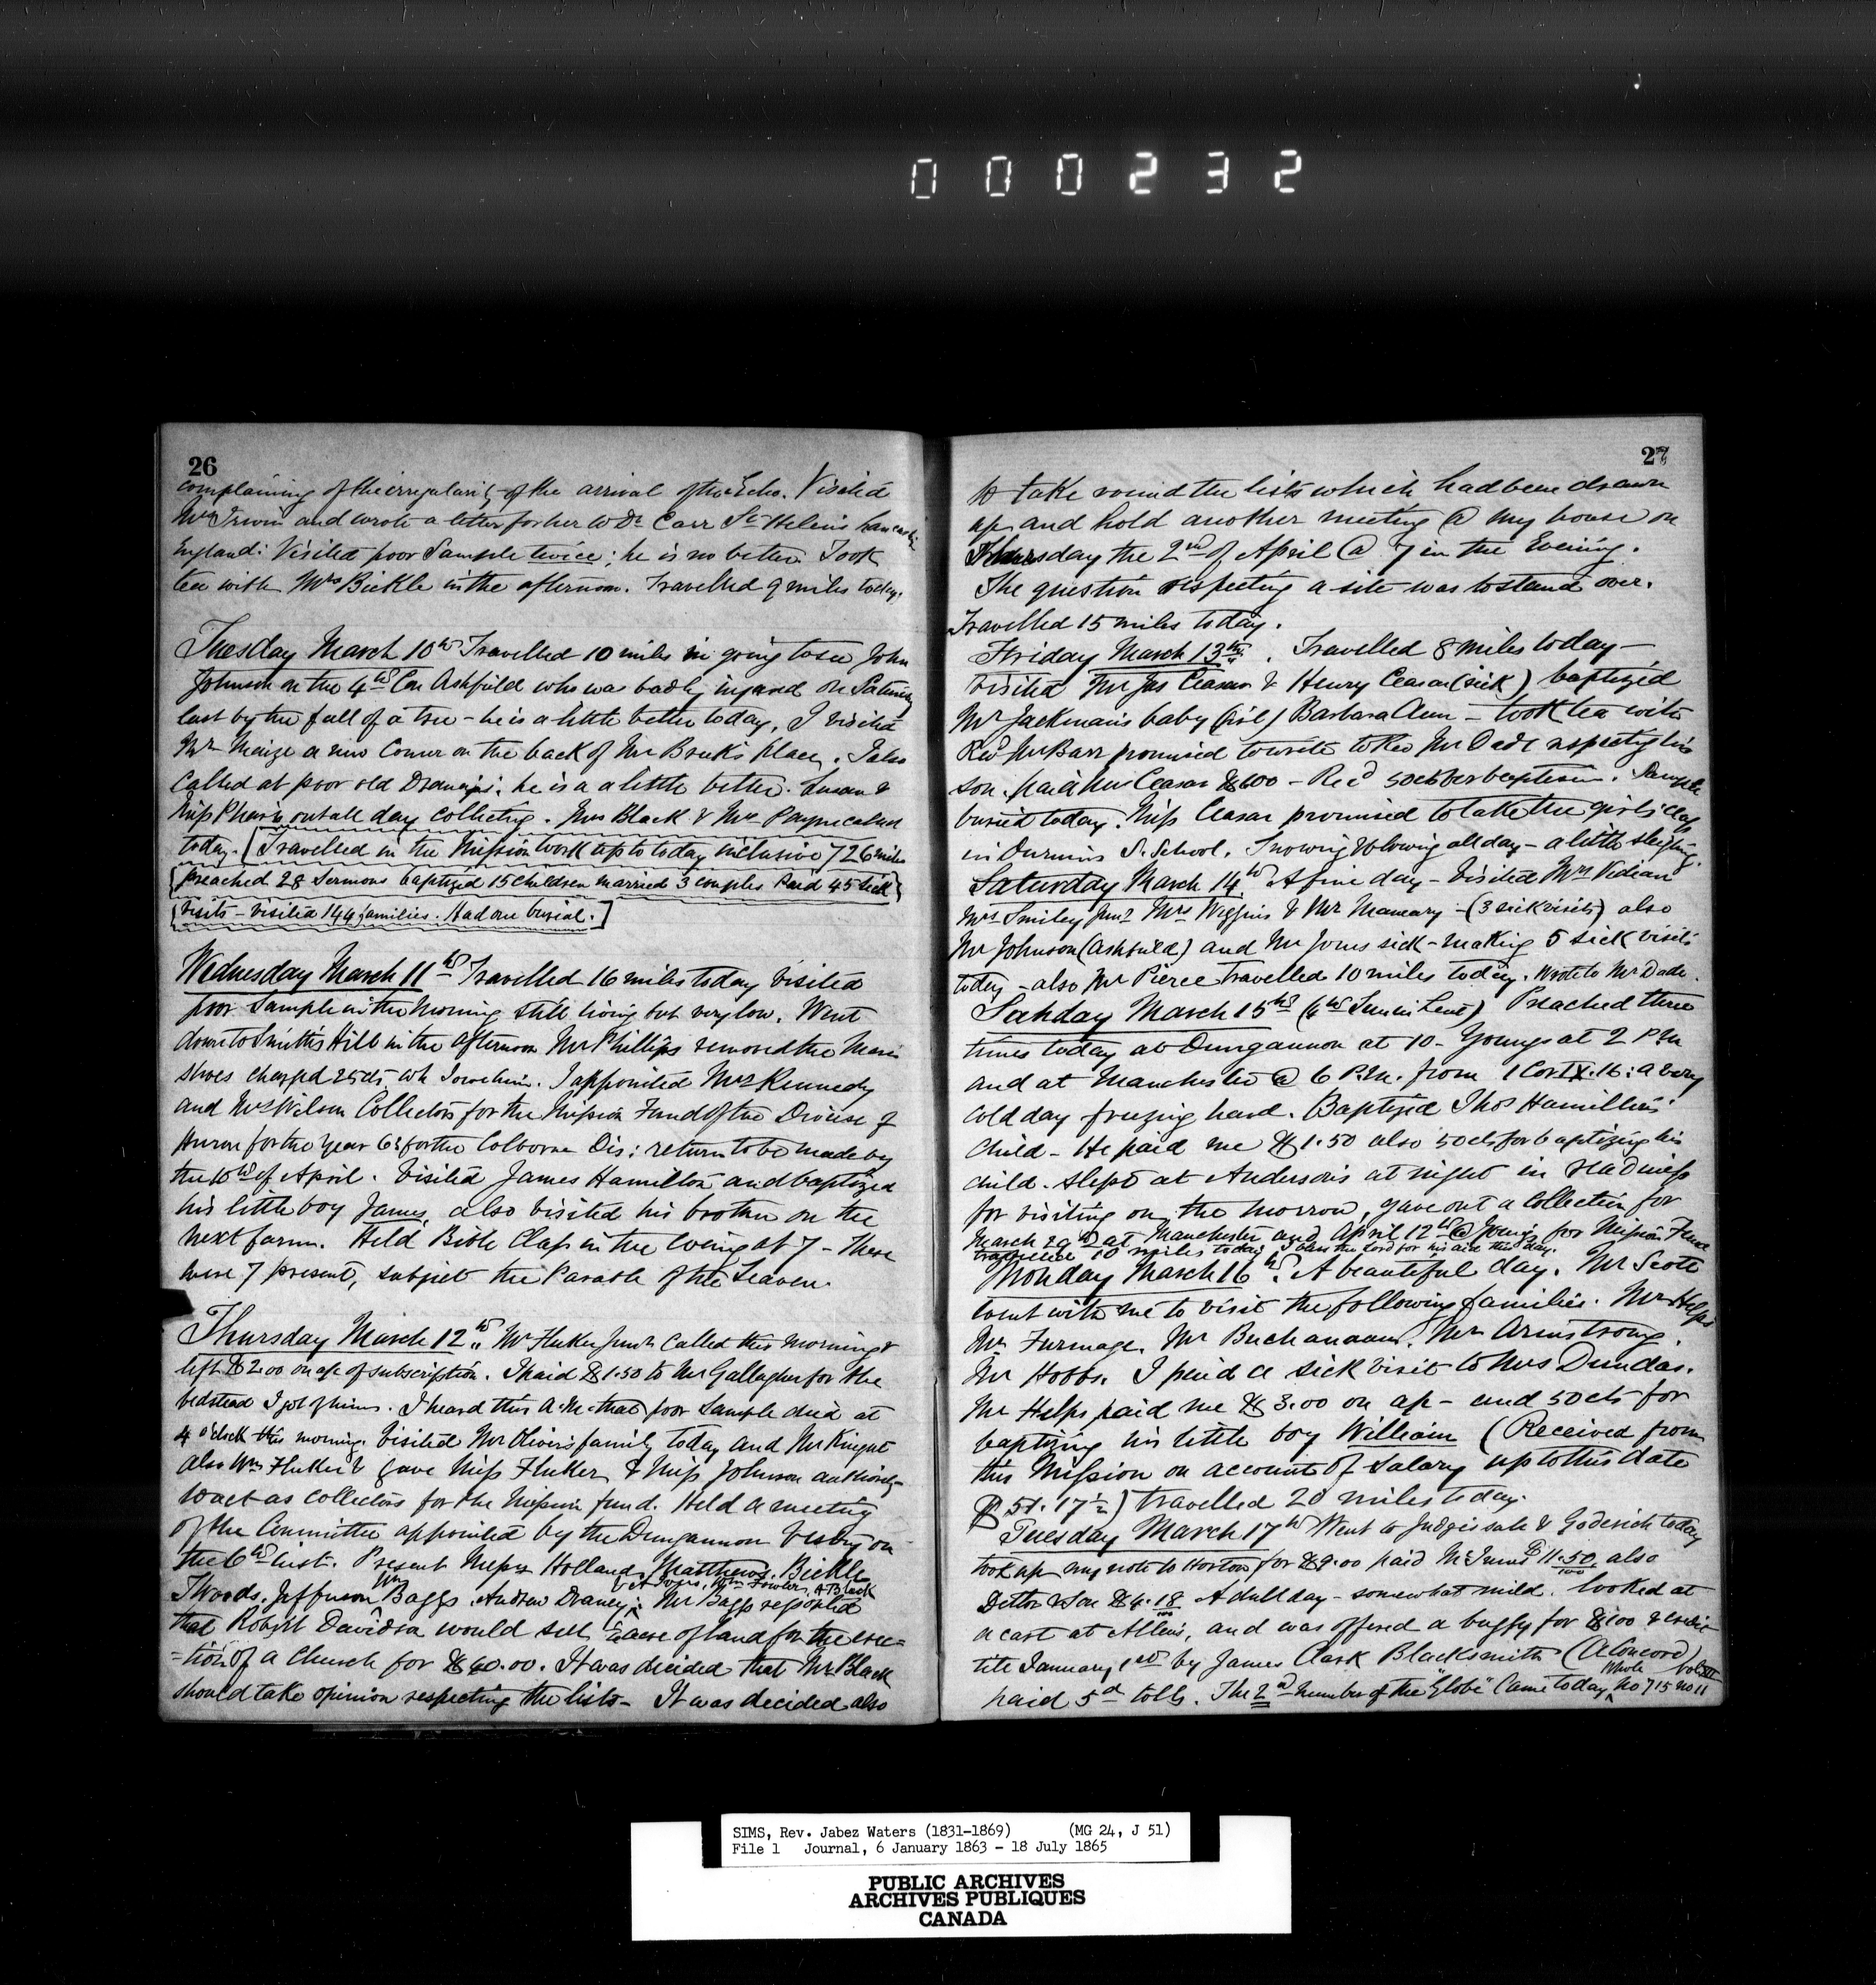 000232
26
complaining of the irregularity of the arrival of the Echo. Visited
Mrs Irwin and wrote a letter for her to Dr Carr St Helens Lancashire
England: Visited poor Sample twice; he is no better. Took
tea with Mrs Bickle in the afternoon. Travelled 9 miles today.
Tuesday March 10th Travelled 10 miles in going to see John
Johnson on the 4th Con Ashfield who was badly injured on Saturday
last by the fall of a tree - he is a little better today, I visited
Mr Maize a new Comer on the back of Mr place. I also
called at poor old he is a a little better. Susan &
Miss out all day collecting. Mrs Black & Mrs Payne called
today. [Travelled in the Mission work up to today inclusive 726 miles
preached 28 Sermons baptized 15 children married 3 couples Paid 45 Sick
visits - visited 144 families. Had one burial.]
Wednesday March 11th Travelled 16 miles today visited
poor Sample in the morning still living but very low. Went
down to Smith's Hill in the afternoon Mr Phillips removed the Mare's
shoes charged 25cts wh I owe him. I appointed Mrs Kennedy
and Mrs Wilson Collectors for the Mission Fund of the Diocese of
Huron for the year 63 for the Colborne Dis: return to be made by
the 10th of April. Visited James Hamilton and baptized
his little boy James, also visited his brother on the
next farm. Held Bible Class in the evening at 7 - There
were 7 present, subject the Parable of the Leaven.
Thursday March 12th Mr Fluker Junr called this morning &
left $2.00 on a/c of subscription. I paid $1.50 to Mr Gallagher for the
bedstead I got of him. I heard this A.M. that poor Sample died at
4 o'clock this morning. Visited Mr Oliver's family today and Mr
also Wm Fluker & gave Miss Fluker & Miss Johnson authority
to act as collectors for the Mission fund. Held a meeting
of the Committee appointed by the Dungannon Vestry on
the 6th inst. Present Messrs Holland, Matthews, Bickle
& A Fowler, A Black
T Woods, Jefferson Wm Baggs, Andrew Mr Baggs reported
that Robert Davidson would sell acre of land for the erec=
=tion of a Church for $60.00. It was decided that Mr Black
should take opinion respecting the lists - It was decided also
27
to take round the lists which had been drawn
up and hold another meeting @ my house on
Thursday the 2nd of April @ 7 in the Evening.
The question respecting a site was to stand over.
Travelled 15 miles today.
Friday March 13th. Travelled 8 miles today -
Visited Mr Jas Ceasar & Henry Ceasar (sick) baptized
Mr Jackman's baby (girl) Barbara Ann - took tea with
Revd Mr Barr promised to write to Rev Mr Dade respecting his
son. paid Mr Ceasar $6.00 - Rec'd 50cts for baptism. Sample
buried today. Miss Ceasar promised to take the girls class
in S. School. Snowing & blowing all day - a little sleighing.
Saturday March 14th A fine day - Visited Mrs Vidian
Mrs Smiley Junr Mrs Wiggins & Mr - (3 sick visits) also
Mr Johnson (Ashfield) and Mr Jones sick - making 5 sick visits
today - also Mr Pierce travelled 10 miles today. Wrote to Mr Dade.
Sunday March 15th (4th Sun in Lent) Preached three
times today at Dungannon at 10 - Youngs at 2 P.M
and at Manchester @ 6 P.M. from 1 Cor IX.16: a very
cold day freezing hard. Baptized Thos Hamilton's
child - He paid me $1.50 also 50cts for baptizing his
child. Slept at Anderson's at night in readiness
for visiting on the morrow, gave out a Collection for
March 29th at Manchester and April 12th @ Young's for Mission Fund
travelled 10 miles today I bless the Lord for his aid this day.
Monday March 16th. A beautiful day. Mr Scott
went with me to visit the following families. Mr Helps
Mr Furmage. Mr Buchanaan. Mr Armstrong.
Mr Hobbs. I paid a sick visit to Mrs Dundas.
Mr Helps paid me $3.00 on a/c - and 50cts for
baptizing his little boy William (Received from
this Mission on account of Salary up to this date
$51.17½) travelled 20 miles today.
Tuesday March 17th Went to sale & Goderich today
took up my note to Horton for $9.00 paid $11.50 also
Detlor & Son $4.18 A dull day - somewhat mild. looked at
a cart at Allen's, and was offered a buggy for $100 & credit
till January 1st by James Clark Blacksmith (A Concord)
paid 5d tolls. The 2nd number of the "Globe" came today Whole No 715 No 11
SIMS, Rev. Jabez Waters (1831-1869) (MG 24, J 51)
File 1 Journal, 6 January 1863 - 18 July 1865
PUBLIC ARCHIVES
ARCHIVES PUBLIQUES
CANADA